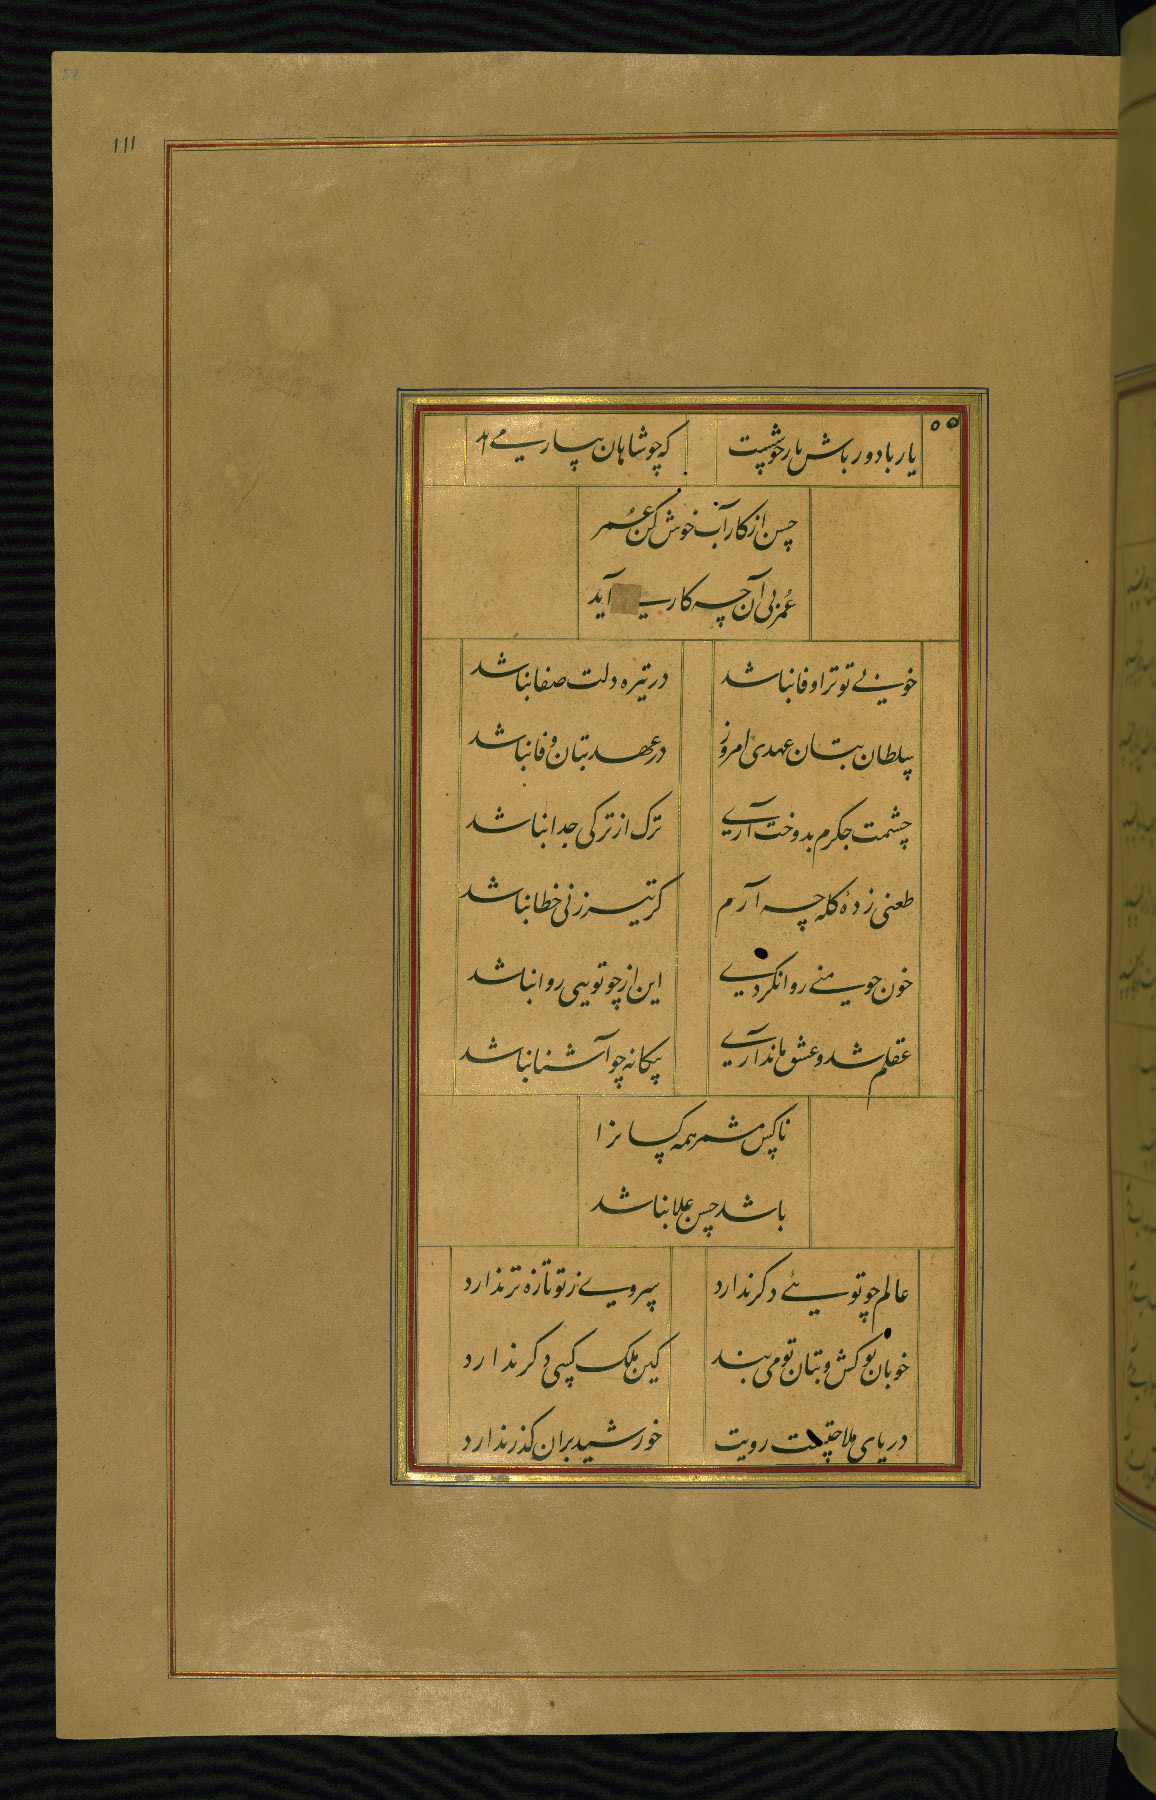 111
یار با دور باش بار خوشست
که چو شاهان سپار می
حسن از کار آب خوش کن عمر
عمر بی آن چه کار آید
خوبی تو ترا وفا نباشد
در تیره دلت صفا نباشد
سلطان بتان عهدی امروز
در عهد بتان وفا نباشد
چشمت جگرم بدوخت آری
ترک از ترکی جدا نباشد
طعنی زدهٔ کله چه آرم
کر تیر زنی خطا نباشد
خون جوی منی روا نکردی
این از چو تویی روا نباشد
عقلم شد و عشق ماند آری
بیکانه چو آشنا نباشد
ناکس مشمر همه کسانرا
باشد حسن علا نباشد
عالم چو توئی دکر ندارد
سروی ز تو تازه تر ندارد
خوبان تو کش و بتان تو می بند
کین ملک کسی دکر ندارد
دریای ملاحتست رویت
خورشید بران کذر ندارد